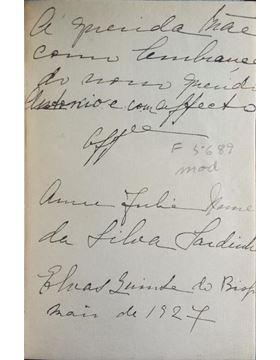 Á querida Mãe
como lembrança
do nosso querido
Antonio e com affecto
off.ce
F 5689
mod
Anna Julia
da Silva
Elvas Quinta do Bispo
maio de 1927